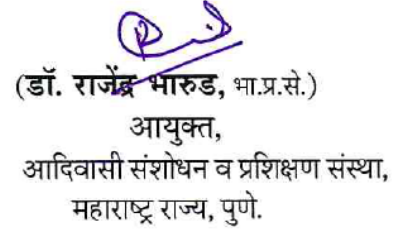 (डॉ. राजेंद्र भारुड, भा.प्र.से.)
आयुक्त,
आदिवासी संशोधन व प्रशिक्षण संस्था,
महाराष्ट्र राज्य, पुणे.